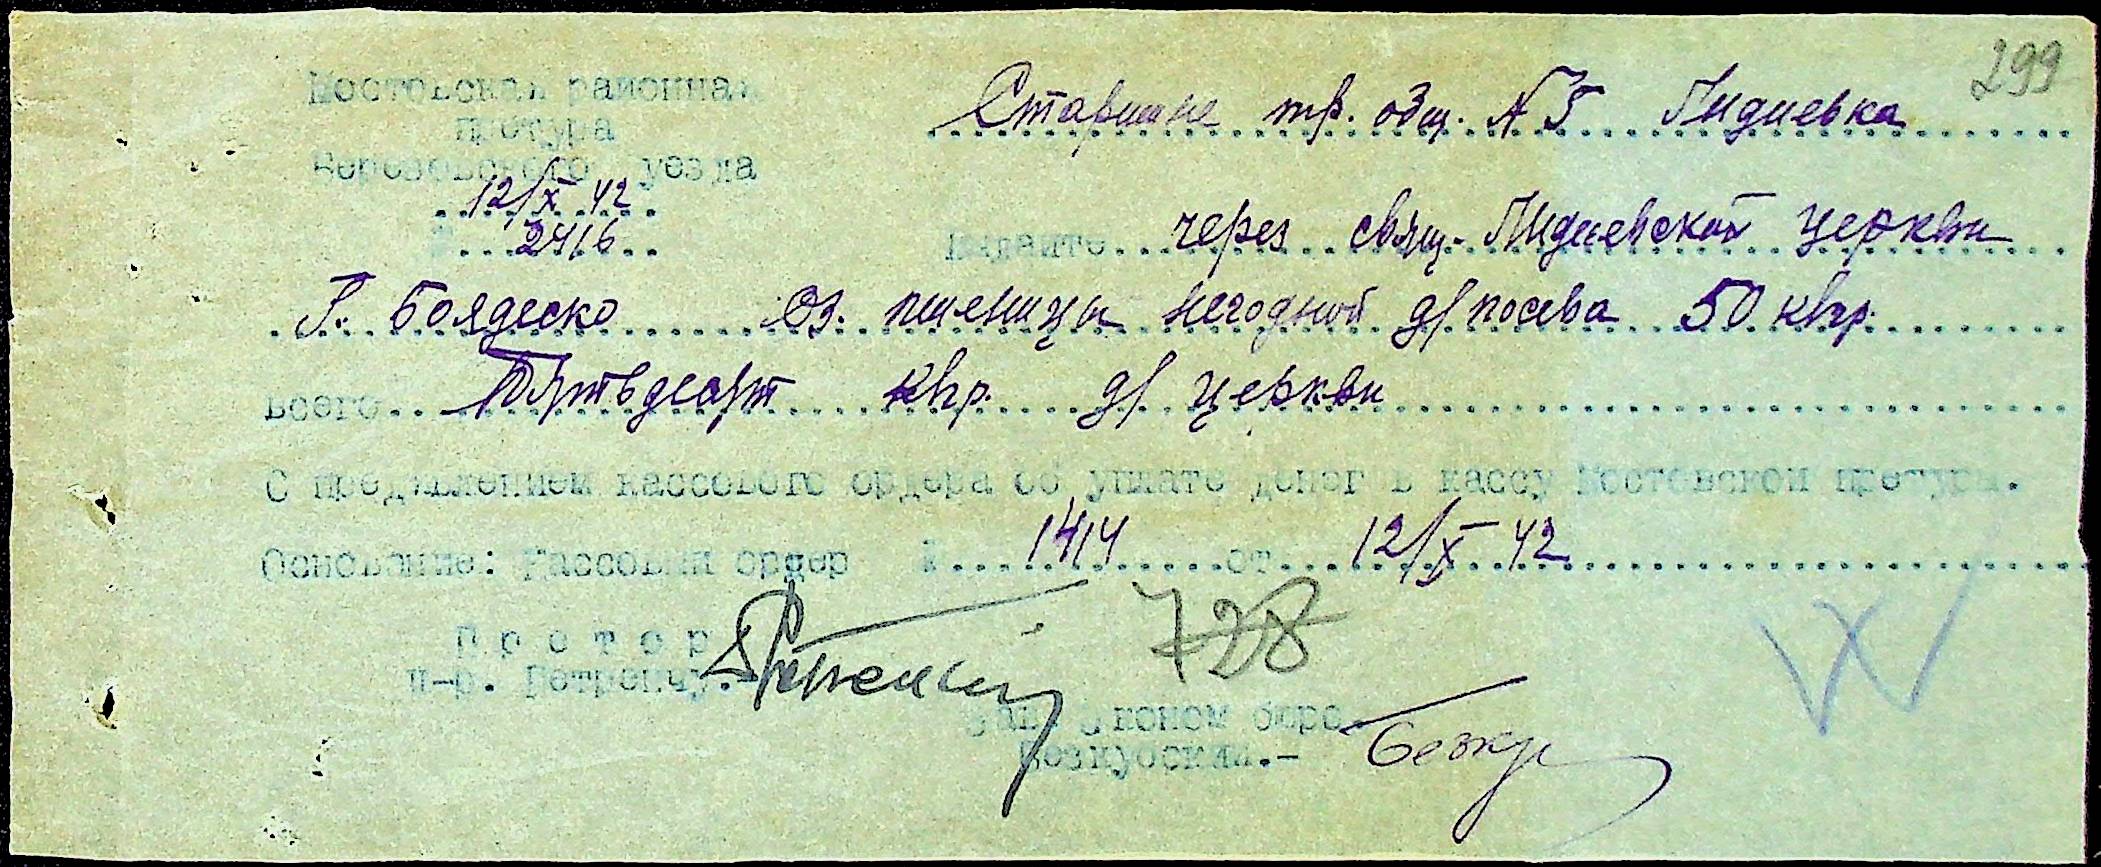 299
Мостовская районная
претура
Березовского уезда
12/X 42
№ 2416
Старшине тр. общ. № 5 Лидиевка
Выдайте через свящ. Лидиевской церкви
Г. Боядеско Оз. пшеницы негодной д/посева 50 клгр.
Всего Пятьдесят клгр. д/ церкви
С пред'явлением кассового ордера об уплате денег в кассу Мостовской претуры.
Основание: Кассовый ордер № 1414 от 12/X 42
Претор
п-р. Петренчу.
728
Зав. Эконом бюро
Безкубский.-